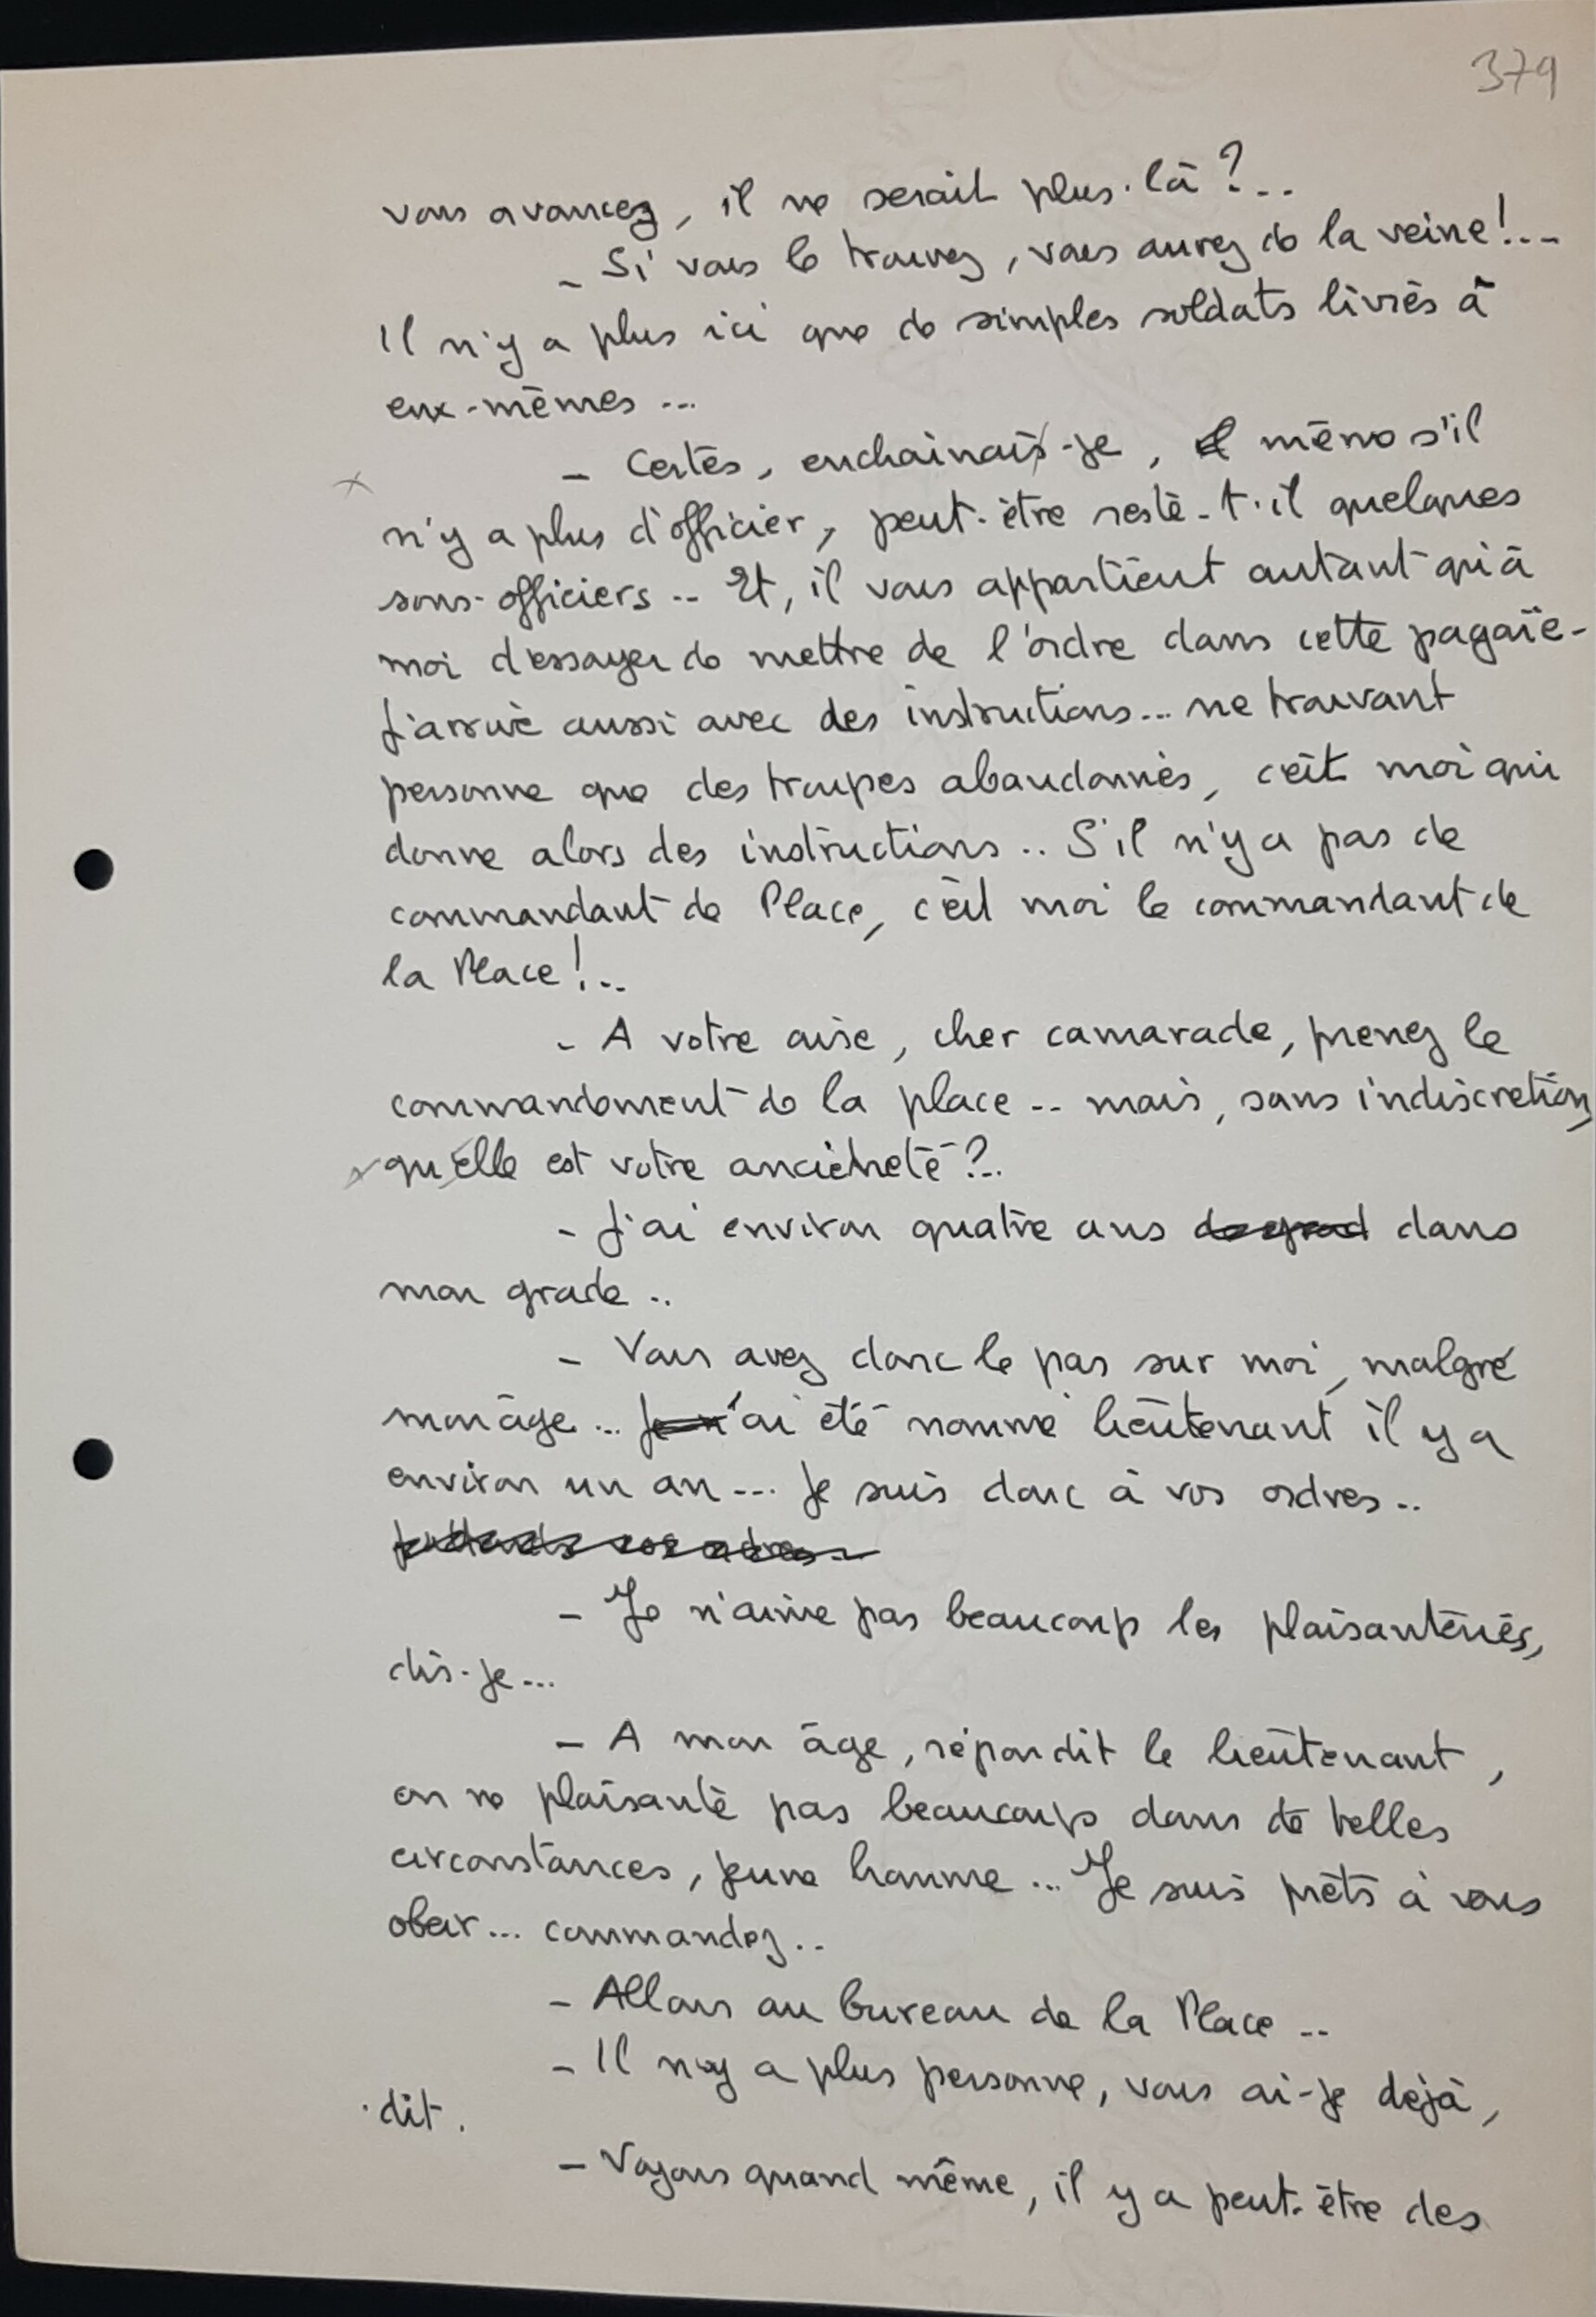 379
vous avancez, il ne serait plus là ?..
- Si vous le trouvez, vous aurez de la veine !...
Il n'y a plus ici que de simples soldats livrés à
eux-mêmes ...
- Certes, enchainais-je, même s'il
n'y a plus d'officier, peut-être reste-t-il quelques
sous-officiers .. Et, il vous appartient autant qu'à
moi d'essayer de mettre de l'ordre dans cette pagaïe -
J'arrive aussi avec des instructions... ne trouvant
personne que des troupes abandonnés, c'est moi qui
donne alors des instructions .. S'il n'y a pas de
commandant de Place, c'est moi le commandant de
la Place !..
- A votre aise, cher camarade, prenez le
commandement de la place .. mais, sans indiscretion,
qu'elle est votre ancienneté ?..
- J'ai environ quatre ans de grad dans
mon grade ..
- Vous avez donc le pas sur moi, malgré
mon âge ... J'ai été nommé lieutenant il y a
environ un an ... Je suis donc à vos ordres ..
J'attends vos ordres ..
- Je n'aime pas beaucoup les plaisanteries,
dis-je ...
- A mon âge, répondit le lieutenant,
on ne plaisante pas beaucoup dans de telles
circonstances, jeune homme ... Je suis prêts à vous
obeir ... commandez ..
- Allons au bureau de la Place ..
- Il n'y a plus personne, vous ai-je dejà,
dit.
- Voyons quand même, il y a peut-être des